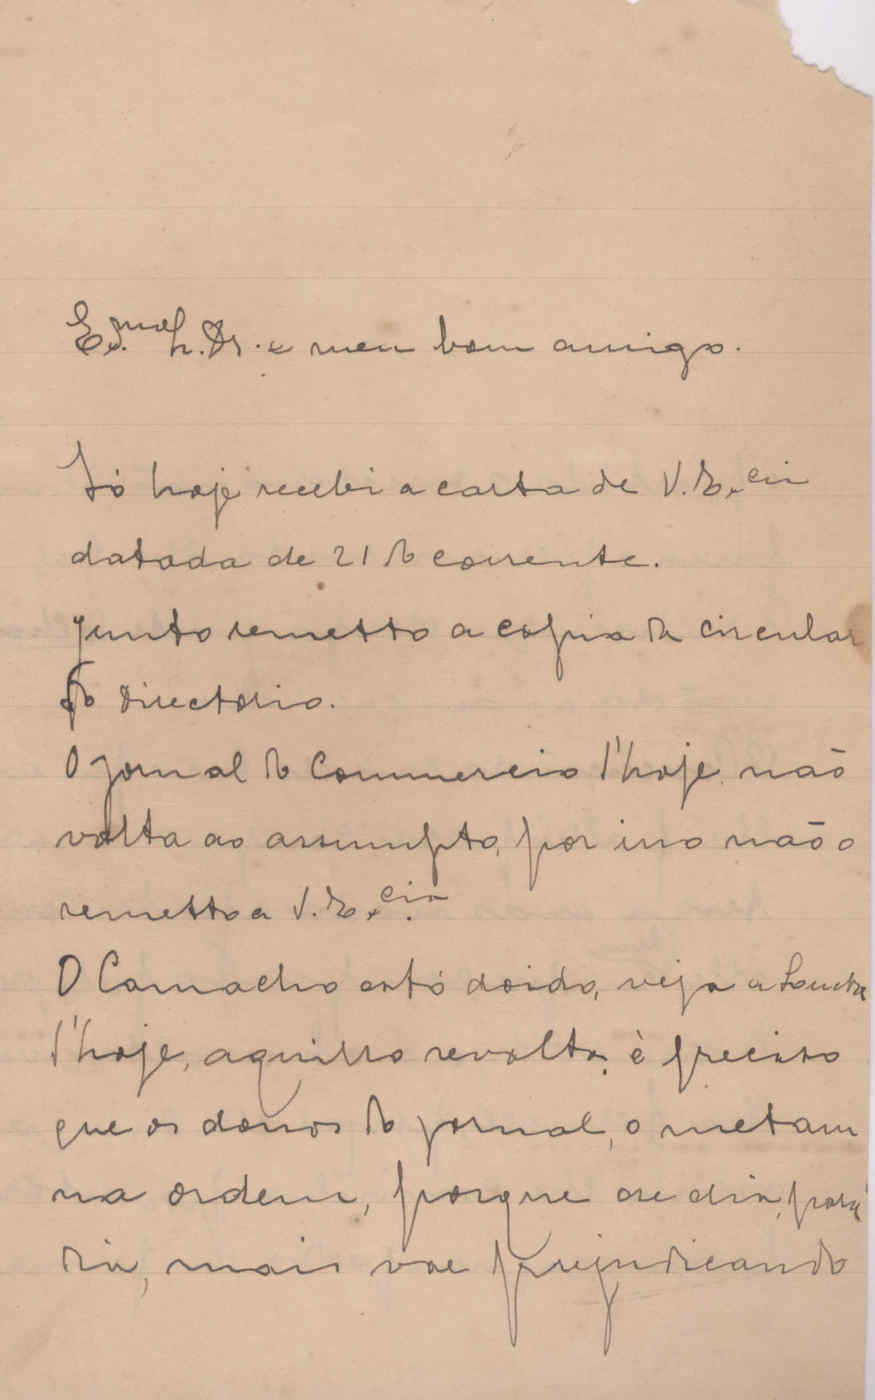 Ex.mo Sr. Dr. e meu bom amigo.
Só hoje recebi a carta de V. Ex.cia
datada de 21 do corrente.
Junto remetto a copia da circular
do Directorio.
O Jornal do Commercio d'hoje não
volta ao assumpto, por isso não o
remetto a V. Ex.cia.
O Camacho está doido, veja a Loucta
d'hoje, aquillo revolta, è preciso
que os donos do jornal, o metam
na ordem, porque de dia, para
dia, mais vae prejudicando